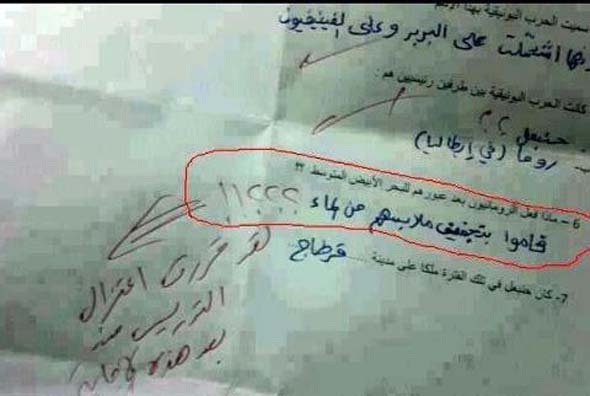 سميت الحرب البونيقية بهذا الاسم
اشتملت على البربر وعلى الفينيقيون
كانت الحرب البونيقية بين طرفين رئيسيين هم :
حنبعل ؟؟
روما (في إيطاليا)
6 - ماذا فعل الرومانيون بعد عبورهم للبحر الأبيض المتوسط ؟؟
قاموا بتجفيف ملابسهم من الماء ؟؟؟؟!!
7- كان حنبعل في تلك الفترة ملكا على مدينة ..... قرطاج
لقد قررت اعتزال
التدريس منذ
بعد هذه الإجابة